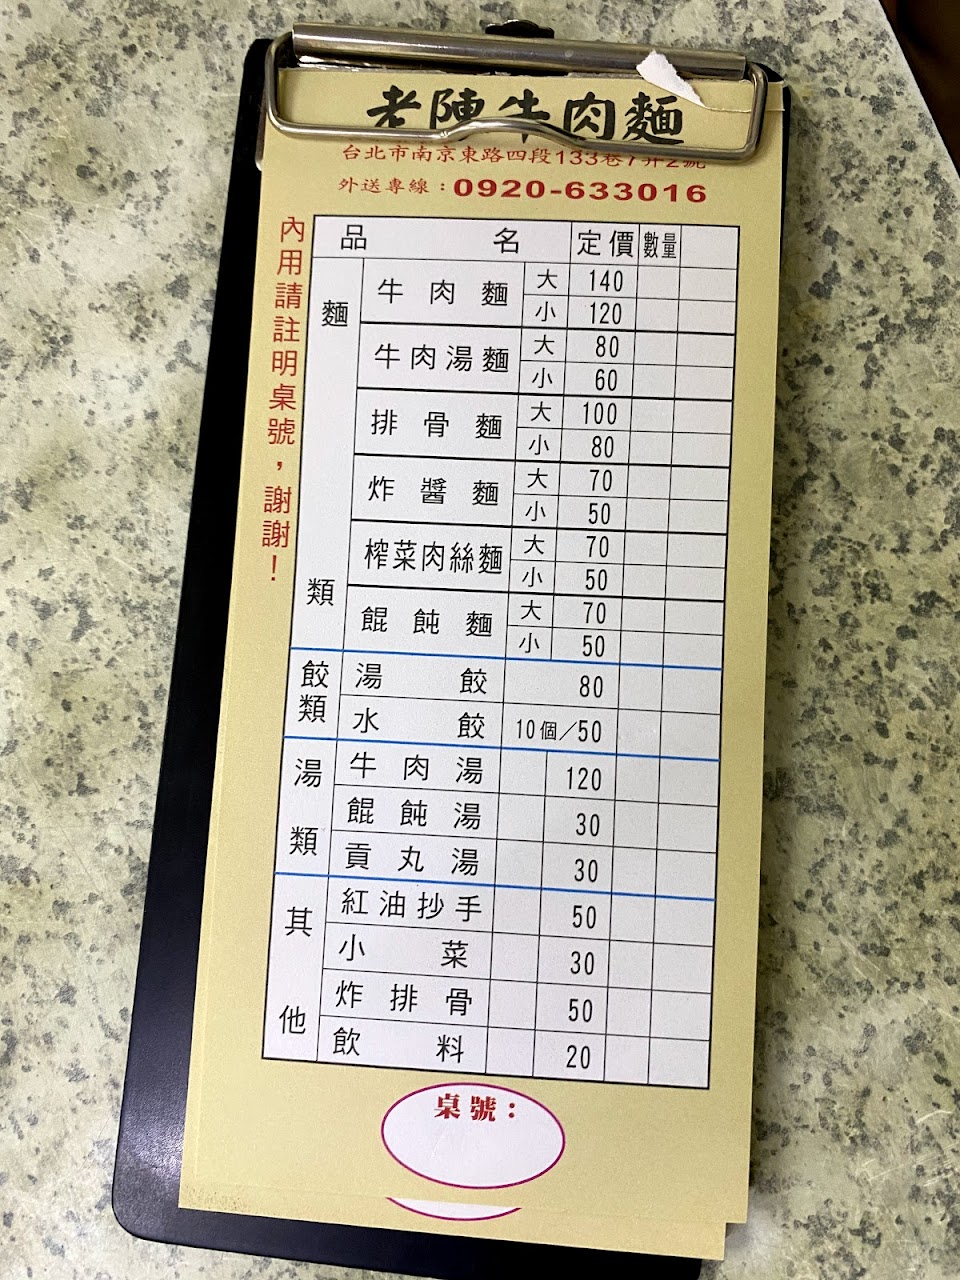 老陳牛肉麵
台北市南京東路四段133巷7弄2號
外送專線：0920-633016
內用請註明桌號，謝謝！
品名 定價 數量
麵類
牛肉麵 大 140
小 120
牛肉湯麵 大 80
小 60
排骨麵 大 100
小 80
炸醬麵 大 70
小 50
榨菜肉絲麵 大 70
小 50
餛飩麵 大 70
小 50
餃類
湯餃 80
水餃 10個／50
湯類
牛肉湯 120
餛飩湯 30
貢丸湯 30
其他
紅油抄手 50
小菜 30
炸排骨 50
飲料 20
桌號：